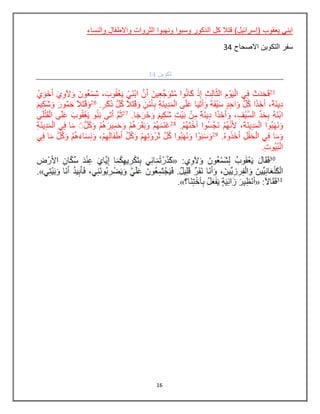 ابني يعقوب (إسرائيل) قتلا كل الذكور وسبوا ونهبوا الثروات والاطفال والنساء
سفر التكوين الاصحاح 34
تكوين 34
25فَحَدَثَ فِي الْيَوْمِ الثَّالِثِ إِذْ كَانُوا مُتَوَجِّعِينَ أَنَّ ابْنَيْ يَعْقُوبَ، شِمْعُونَ وَلاَوِيَ أَخَوَيْ
دِينَةَ، أَخَذَا كُلُّ وَاحِدٍ سَيْفَهُ وَأَتَيَا عَلَى الْمَدِينَةِ بِأَمْنٍ وَقَتَلاَ كُلَّ ذَكَرٍ. 26وَقَتَلاَ حَمُورَ وَشَكِيمَ
ابْنَهُ بِحَدِّ السَّيْفِ، وَأَخَذَا دِينَةَ مِنْ بَيْتِ شَكِيمَ وَخَرَجَا. 27ثُمَّ أَتَى بَنُو يَعْقُوبَ عَلَى الْقَتْلَى
وَنَهَبُوا الْمَدِينَةَ، لأَنَّهُمْ نَجَّسُوا أُخْتَهُمْ. 28غَنَمَهُمْ وَبَقَرَهُمْ وَحَمِيرَهُمْ وَكُلَّ مَا فِي الْمَدِينَةِ
وَمَا فِي الْحَقْلِ أَخَذُوهُ. 29وَسَبَوْا وَنَهَبُوا كُلَّ ثَرْوَتِهِمْ وَكُلَّ أَطْفَالِهِمْ، وَنِسَاءَهُمْ وَكُلَّ مَا فِي
الْبُيُوتِ.
30فَقَالَ يَعْقُوبُ لِشَمْعُونَ وَلاَوِي: «كَدَّرْتُمَانِي بِتَكْرِيهِكُمَا إِيَّايَ عِنْدَ سُكَّانِ الأَرْضِ
الْكَنْعَانِيِّينَ وَالْفِرِزِّيِّينَ، وَأَنَا نَفَرٌ قَلِيلٌ. فَيَجْتَمِعُونَ عَلَيَّ وَيَضْرِبُونَنِي، فَأَبِيدُ أَنَا وَبَيْتِي».
31فَقَالاَ: «أَنَظِيرَ زَانِيَةٍ يَفْعَلُ بِأُخْتِنَا؟».
16